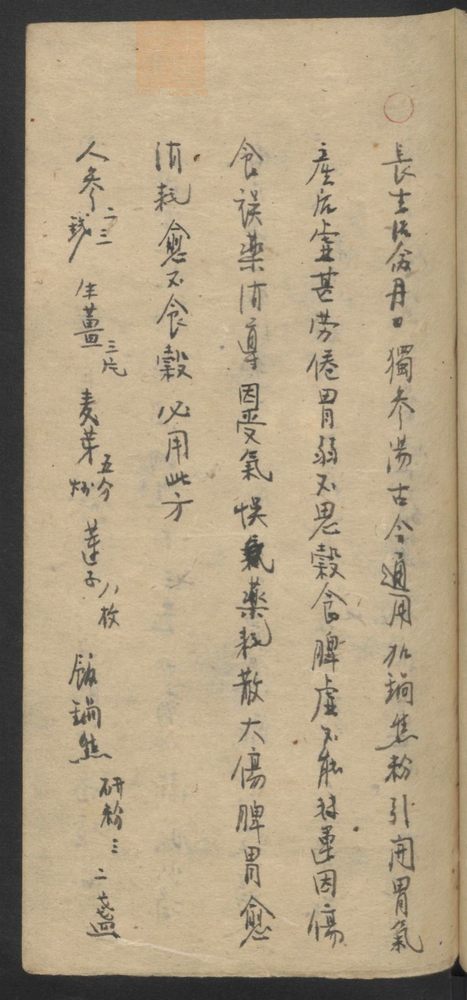 長生活命丹曰獨参湯古今通用加鍋焦粉引開胃氣
産后虚甚勞倦胃弱不思穀食脾虚不能轉運因傷
食误薬消導因受氣悮氣薬耗散大傷脾胃愈
消耗愈不食穀必用此方
人参二三錢 生薑三片 麦芽五分炒 莲子八枚 飯鍋焦研粉三二盏